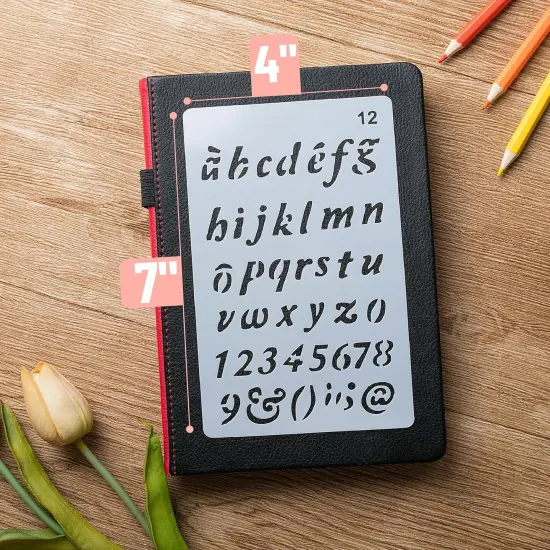 4"
12
àbcdéfg̃
hijklmn
õpqrstu
vwxyz0
12345678
9&()";@
7"